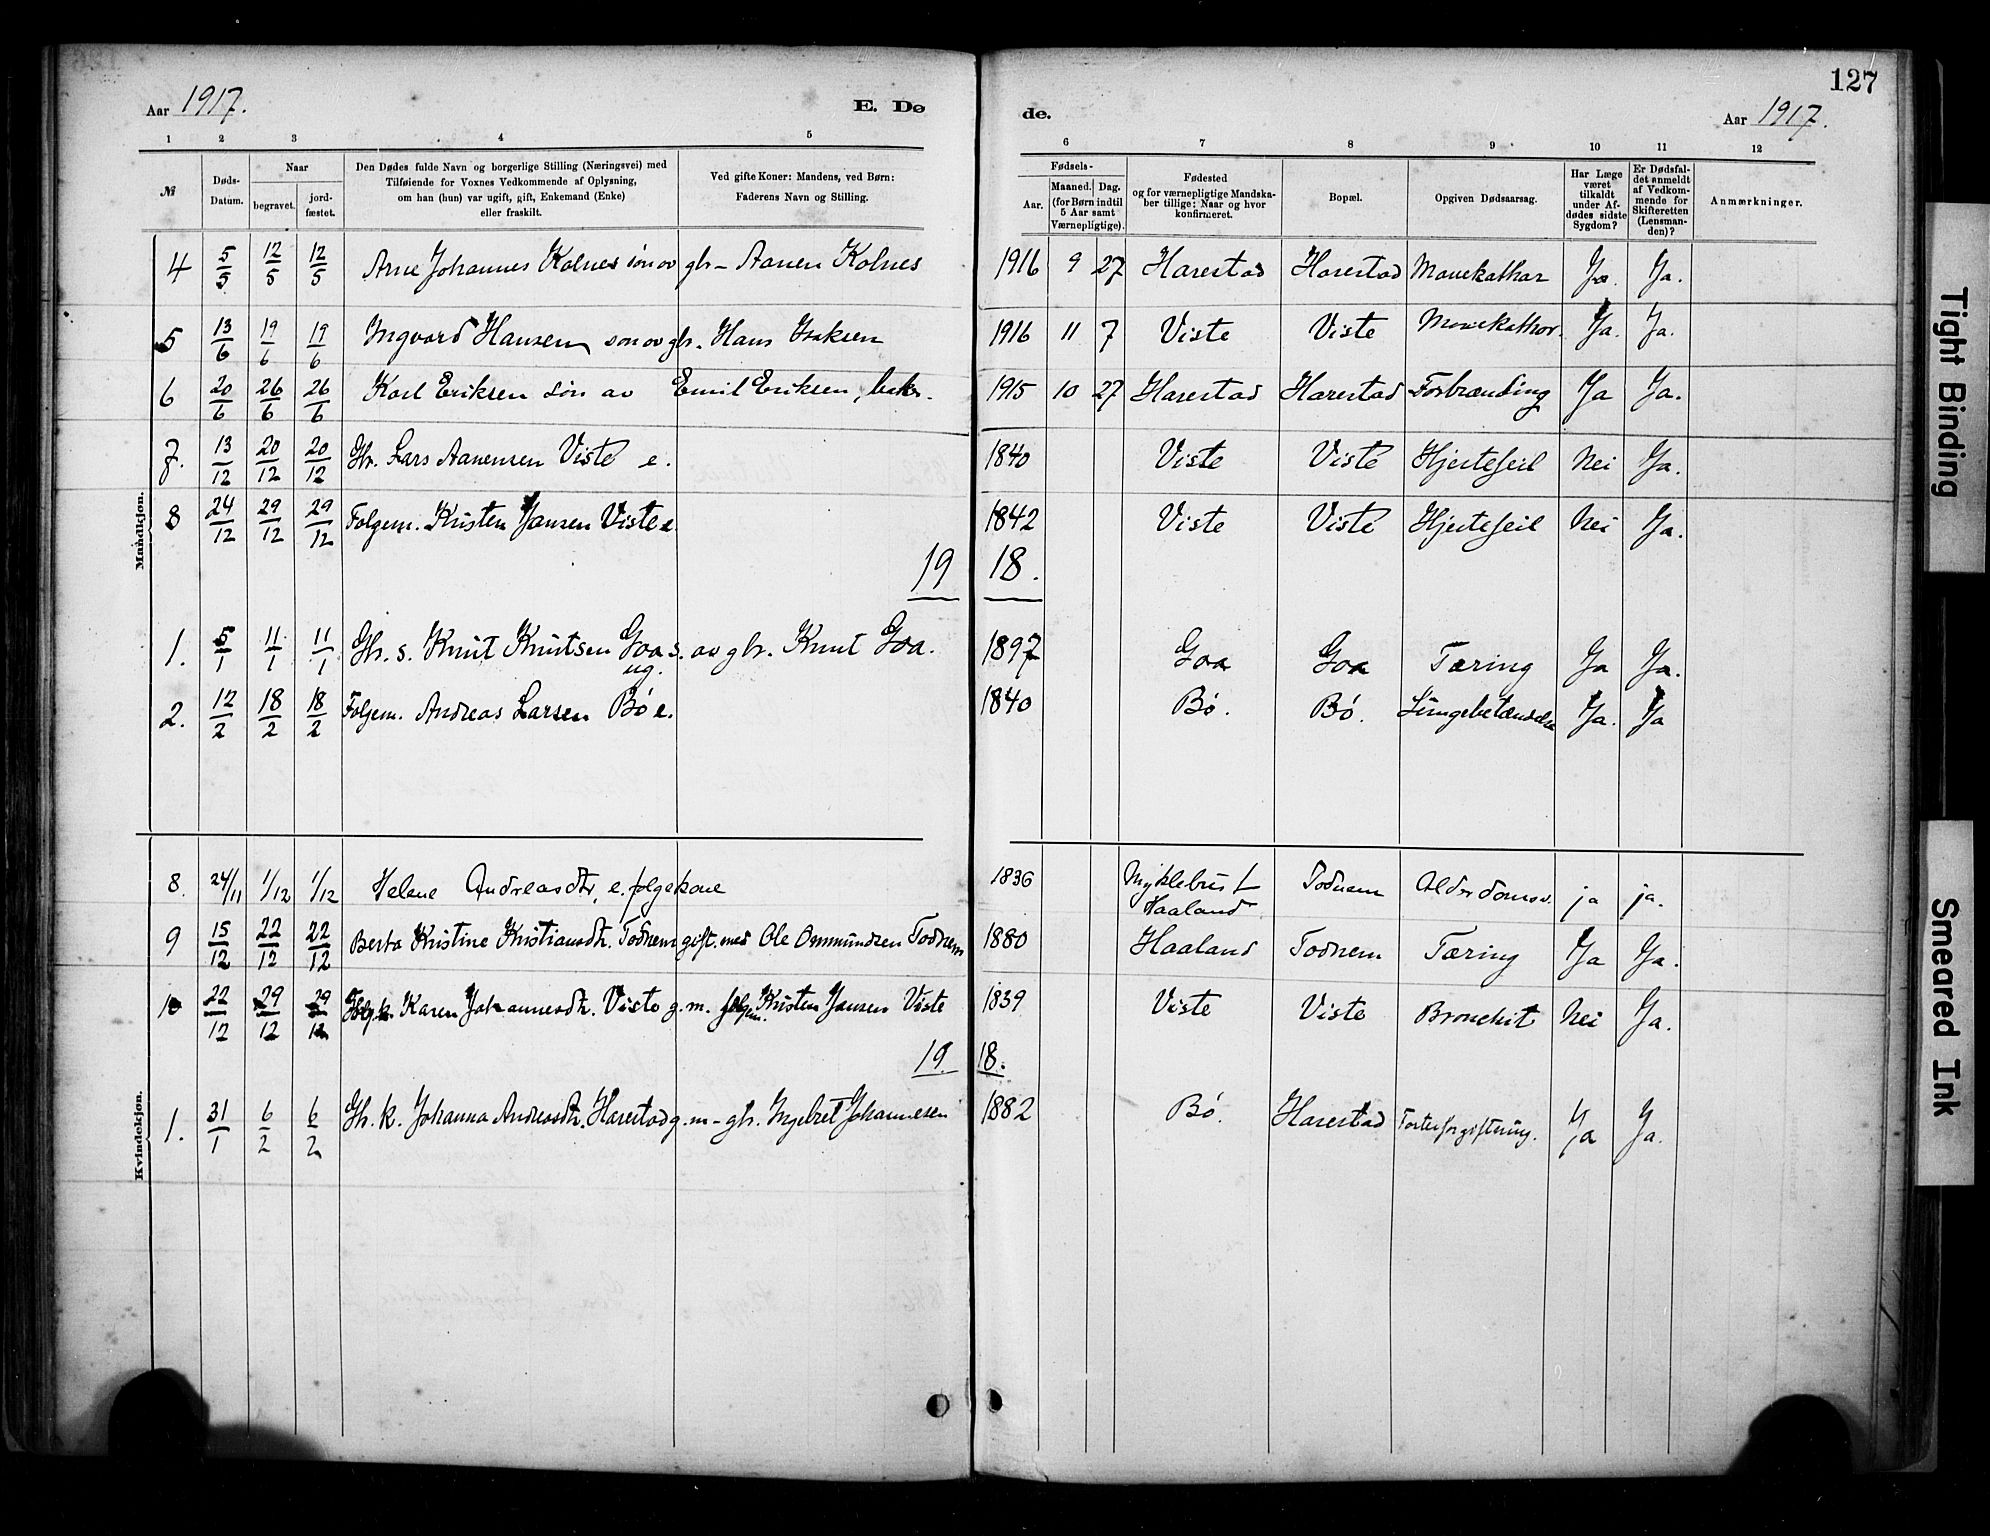 127
Aar 1917.
E. Dø
de.
Aar 1917.
1 2 3 4 5 6 7 8 9 10 11 12
№
Døds-Datum.
Naar
begravet.
jord-fæstet.
Den Dødes fulde Navn og borgerlige Stilling (Næringsvei) med
Tilføiende for Voxnes Vedkommende af Oplysning,
om han (hun) var ugift, gift, Enkemand (Enke)
eller fraskilt.
Ved gifte Koner: Mandens, ved Børn:
Faderens Navn og Stilling.
Fødsels-
Aar.
Maaned. Dag.
(for Børn indtil
5 Aar samt
Værnepligtige).
Fødested
og for værnepligtige Mandska-
ber tillige: Naar og hvor
konfirmeret.
Bopæl.
Opgiven Dødsaarsag.
Har Læge
været
tilkaldt
under Af-
dødes sidste
Sygdom?
Er Dødsfal-
det anmeldt
af Vedkom-
mende for
Skifteretten
(Lensman-
den)?
Anmærkninger.
Mandkjøn.
4 5/5 12/5 12/5 Arne Johannes Kolnes søn av gbr - Aanen Kolnes 1916 9 27 Harestad Harestad Mavekathar Ja. Ja.
5 13/6 19/6 19/6 Ingvard Hansen søn av gbr. Hans Isaksen 1916 11 7 Viste Viste Mavekathar. Ja. Ja.
6 20/6 26/6 26/6 Karl Eriksen søn av Emil Eriksen, bak. 1915 10 27 Harestad Harestad Forbrænding Ja Ja.
7. 13/12 20/12 20/12 Gbr. Lars Aanensen Viste e. 1840 Viste Viste Hjertefeil Nei Ja.
8 24/12 29/12 29/12 Folgem. Kristen Jansen Viste e. 1842 Viste Viste Hjertefeil Nei Ja.
19 18.
1. 5/1 11/1 11/1 Gbr. s. Knut Knutsen Goa s. av gbr. Knut Goa. 1897 Goa Goa Tæring Ja Ja.
ug.
2. 12/2 18/2 18/2 Folgem. Andreas Larsen Bø e. 1840 Bø. Bø. Lungebetændelse Ja. Ja
Kvindekjøn.
8. 24/11 1/12 1/12 Helene Andreasdtr, e. følgekone 1836 Myklebust Todnem Alderdomsv. ja ja.
Haaland
9 15/12 22/12 22/12 Berta Kristine Kristiansdtr. Todnem gift. med Ole Ommundsen Todnem 1880 Haaland Todnem Tæring Ja Ja.
10 22/12 29/12 29/12 Folg.k. Karen Johannesdtr. Viste g. m. folgem. Kristen Jansen Viste 1839 Viste Viste Bronchit Nei Ja.
19. 18.
1. 31/1 6/2 6/2 Gbr. k. Johanna Andreasdtr. Harestad g. m - gbr. Ingebret Johannesen 1882 Bø. Harestad Fosterforgiftning. Ja Ja.
Tight Binding
Smeared Ink